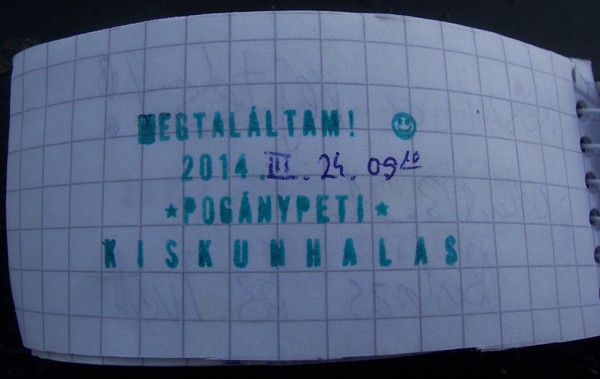 MEGTALÁLTAM!
2014.III.24. 09¹⁰
★POGÁNYPETI★
KISKUNHALAS